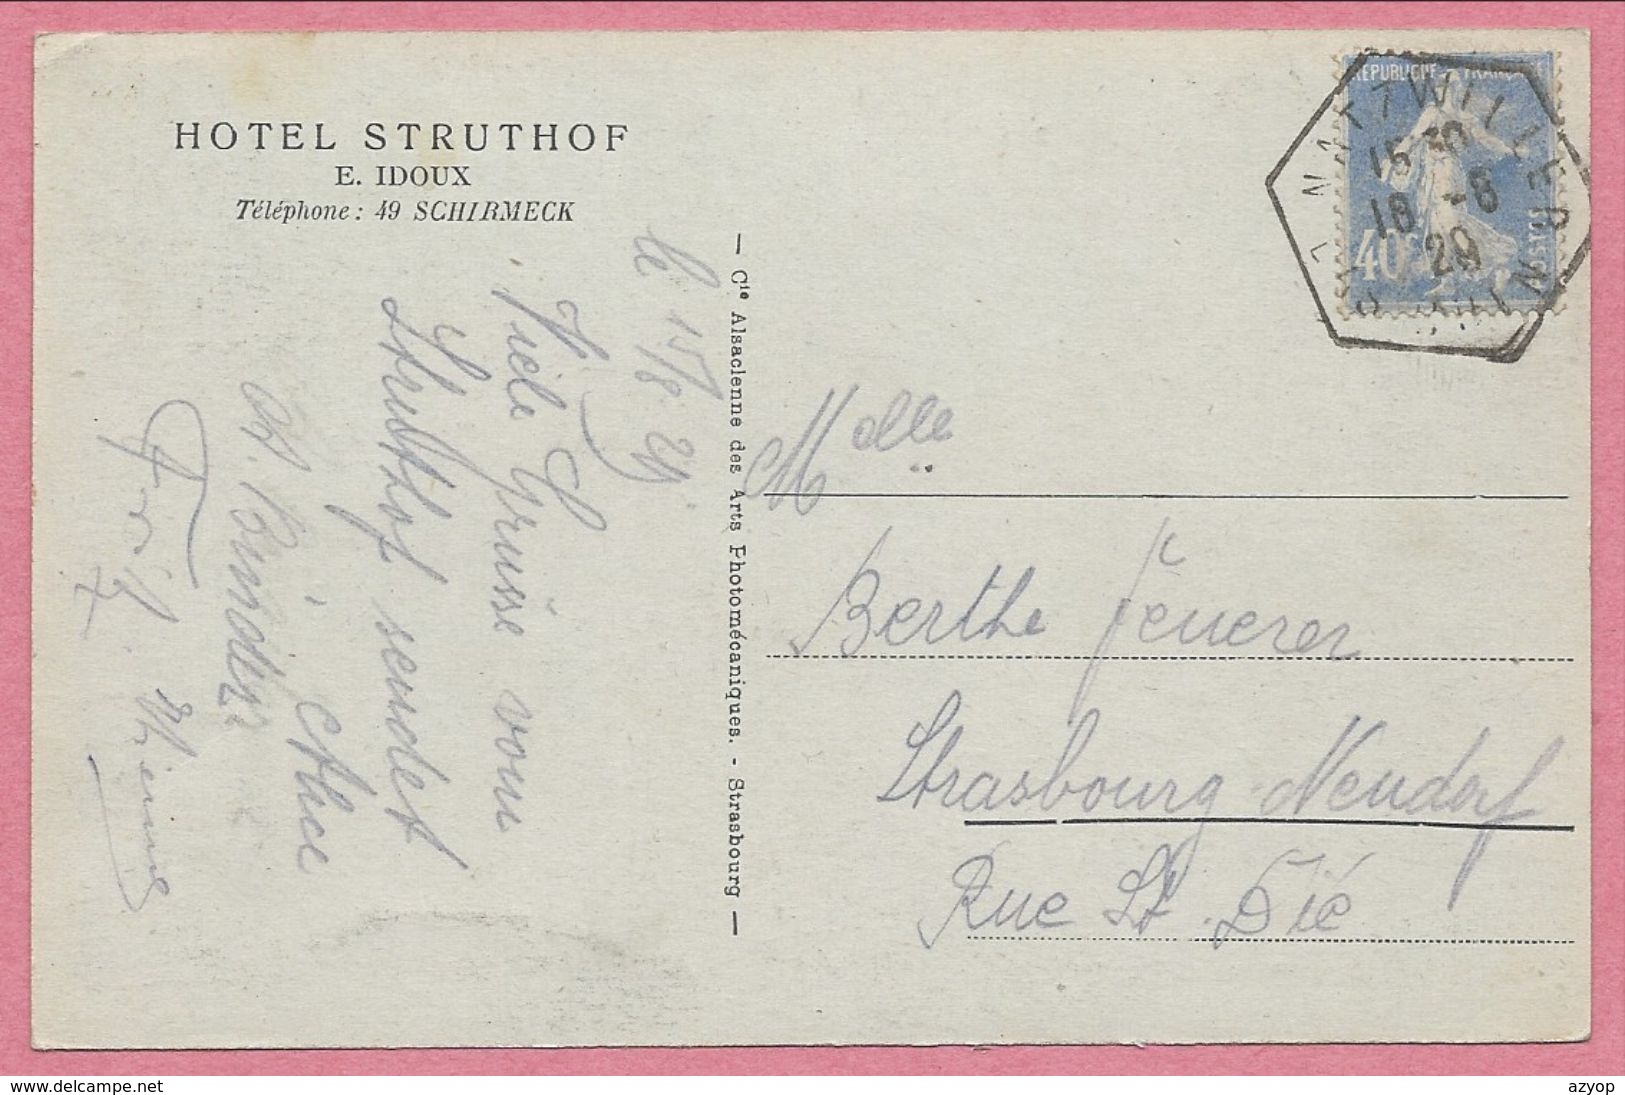 HOTEL STRUTHOF
E. IDOUX
Téléphone: 49 SCHIRMECK
le 15/8 29.
Viele Grüsse vom
Struthof sendet
Alice
A. Binder
— Cie Alsacienne des Arts Photomécaniques. - Strasbourg —
REPUBLIQUE FRANÇAISE
40c
POSTES
NATZWILLER
15 30
16 -8
29
Melle
Berthe Feuerer
Strasbourg Neudorf
Rue St. Dié
www.delcampe.net
azyop